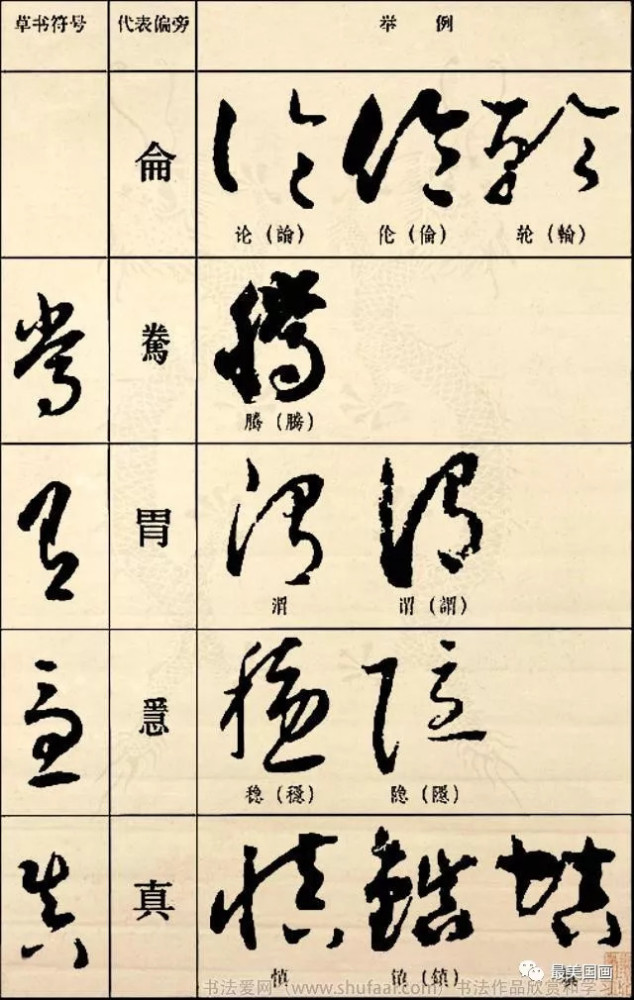 草书符号 代表偏旁 举例
侖
论（論） 伦（倫） 轮（輪）
腾（騰）
胃
渭 谓（謂）
稳（穩） 隐（隱）
真
慎 镇（鎮）
书法爱网（www.shufaai.com）书法作品欣赏和学习
最美国画